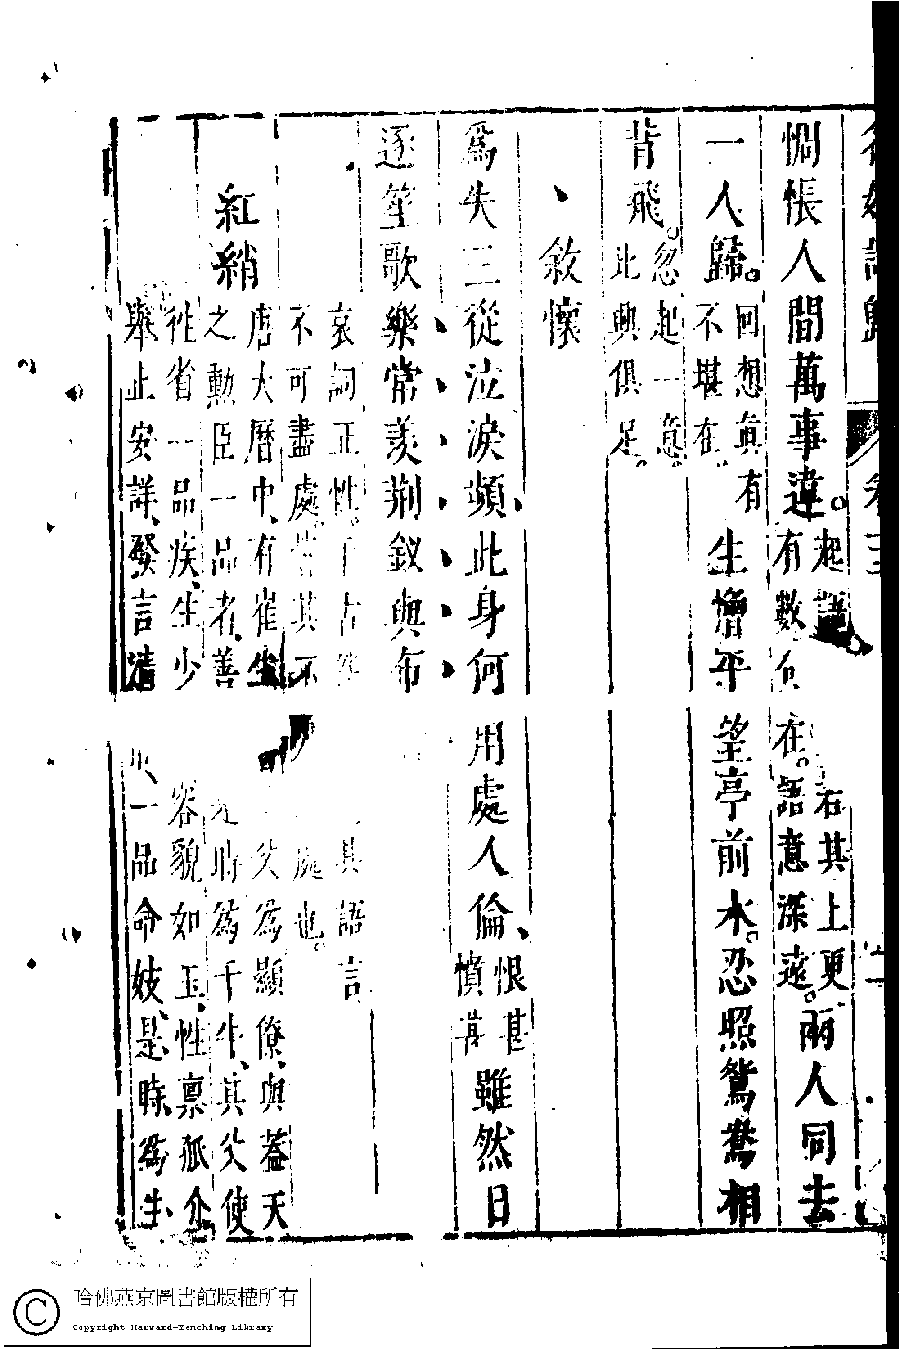 名媛詩歸 卷三
惆悵人間萬事違。起語有數句在。語意深遠。兩人同去
一人歸。回想真有不堪在。生憎平望亭前水。忍照鴛鴦相
背飛。忽起一意此興俱足。
敘懷
為失三從泣淚頻此身何用處人倫、恨甚憤甚雖然日
逐笙歌樂常羨荆釵與布
哀詞正性。具語言
不可盡處其不處也。
紅綃
唐大曆中、有崔生父為顯僚、與蓋天
之勲臣一品者、善為千牛、其父使
徃省一品疾、生少容貌如玉、性禀孤介
舉止安詳、發言清一品命妓、是時為生
哈佛燕京圖書館版權所有
Copyright Harvard-Yenching Library